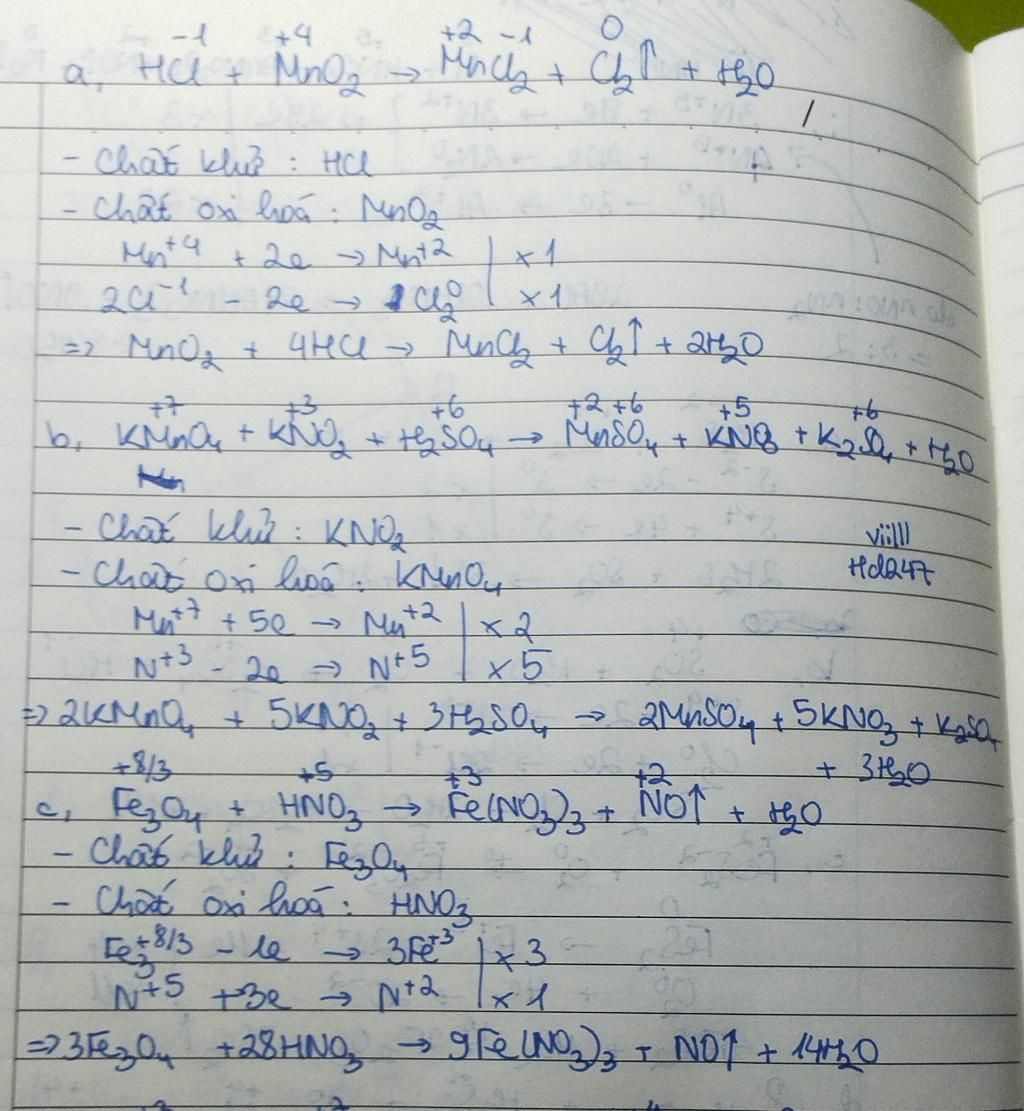 -1 +4 +2 -1 0
a, HCl + MnO2 → MnCl2 + Cl2↑ + H2O
- Chất khử : HCl
- Chất oxi hoá : MnO2
Mn+4 + 2e → Mn+2 | x 1
2Cl-1 - 2e → Cl20 | x 1
=> MnO2 + 4HCl → MnCl2 + Cl2↑ + 2H2O
+7 +3 +6 +2 +6 +5 +6
b, KMnO4 + KNO2 + H2SO4 → MnSO4 + KNO3 + K2SO4 + H2O
- Chất khử : KNO2
viilll
- Chất oxi hoá : KMnO4
Hd247
Mn+7 + 5e → Mn+2 | x 2
N+3 - 2e → N+5 | x 5
=> 2KMnO4 + 5KNO2 + 3H2SO4 → 2MnSO4 + 5KNO3 + K2SO4
+ 3H2O
+8/3 +5 +3 +2
c, Fe3O4 + HNO3 → Fe(NO3)3 + NO↑ + H2O
- Chất khử : Fe3O4
- Chất oxi hoá : HNO3
Fe3+8/3 - 1e → 3Fe+3 | x 3
N+5 +3e → N+2 | x 1
=> 3Fe3O4 +28HNO3 → 9Fe(NO3)3 + NO↑ + 14H2O